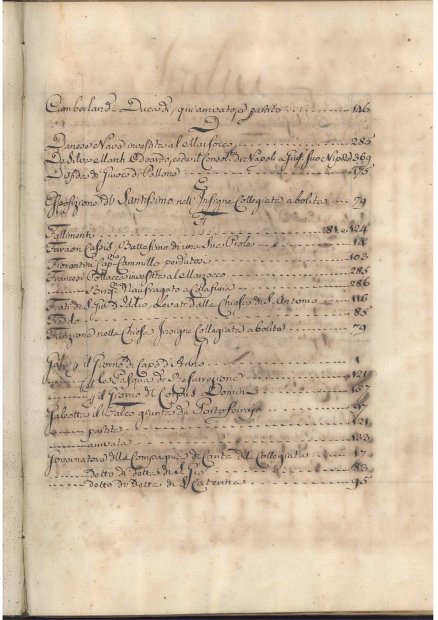 Cumberland Duca di, qui arrivato, e partito 146
D
Danese Nave investita al Marzocco 285
Da Silva March. Odoardo, cede il Consol. di Napoli a Gius. suo Nipote 369
Disfida di Giuoco di Pallone 175
E
Esposizione del Santissimo nell' Insigne Collegiata abolita 79
F
Fallimenti 81. e 124
Faraon Cassis, Battesimo di una sua Prole 14
Fiorentini Cap. Cammillo perduto 103
Francese Pollacca investita al Marzocco 285
Brig. Naufragato a Calafuria 286
Frati di S. Gio. di Dio, Levati dalla Chiesa di S. Antonio 116
85
Funzione nella Chiesa Insigne Collegiata abolite 79
G
il Giorno di Capo d'Anno 1
la Pasqua di Resurrezione 121
il Giorno di Corpus Domini 157
Galeotta il Falco giunta da Portoferrajo 97
partita 121
arrivata 133
Governatore della Compagnia di Carità di Collegiata 17
detto di detta di S. Gio. 83
detto di detta di S. Caterina 95